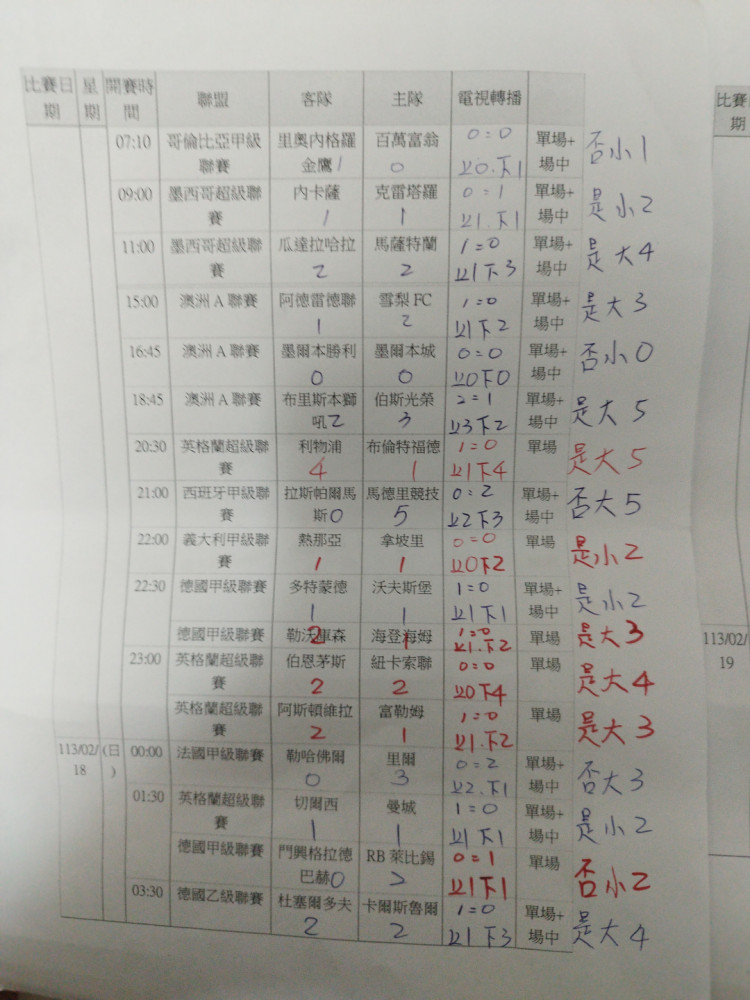 比賽日期 星期 開賽時間 聯盟 客隊 主隊 電視轉播
07:10 哥倫比亞甲級聯賽 里奧內格羅金鷹 1 百萬富翁 0 0:0 上0.下1 單場+場中 否小1
09:00 墨西哥超級聯賽 內卡薩 1 克雷塔羅 1 0:1 上1.下1 單場+場中 是小2
11:00 墨西哥超級聯賽 瓜達拉哈拉 2 馬薩特蘭 2 1=0 上1下3 單場+場中 是大4
15:00 澳洲 A 聯賽 阿德雷德聯 1 雪梨 FC 2 1=0 上1下2 單場+場中 是大3
16:45 澳洲 A 聯賽 墨爾本勝利 0 墨爾本城 0 0=0 上0下0 單場+場中 否小0
18:45 澳洲 A 聯賽 布里斯本獅吼 2 伯斯光榮 3 2=1 上3下2 單場+場中 是大5
20:30 英格蘭超級聯賽 利物浦 4 布倫特福德 1 1=0 上1下4 單場 是大5
21:00 西班牙甲級聯賽 拉斯帕爾馬斯 0 馬德里競技 5 0:2 上2下3 單場+場中 否大5
22:00 義大利甲級聯賽 熱那亞 1 拿坡里 1 0=0 上0下2 單場 是小2
22:30 德國甲級聯賽 多特蒙德 1 沃夫斯堡 1 1:0 上1下1 單場+場中 是小2
德國甲級聯賽 勒沃庫森 2 海登海姆 1 1:0 上1.下2 單場 是大3
23:00 英格蘭超級聯賽 伯恩茅斯 2 紐卡索聯 2 0=0 上0下4 單場 是大4
英格蘭超級聯賽 阿斯頓維拉 2 富勒姆 1 1=0 上1.下2 單場 是大3
113/02/18 (日) 00:00 法國甲級聯賽 勒哈佛爾 0 里爾 3 0=2 上2.下1 單場+場中 否大3
01:30 英格蘭超級聯賽 切爾西 1 曼城 1 1=0 上1下1 單場+場中 是小2
德國甲級聯賽 門興格拉德巴赫 0 RB 萊比錫 2 0=1 上1下1 單場 否小2
03:30 德國乙級聯賽 杜塞爾多夫 2 卡爾斯魯爾 2 1=0 上1下3 單場+場中 是大4
比賽期
113/02/19